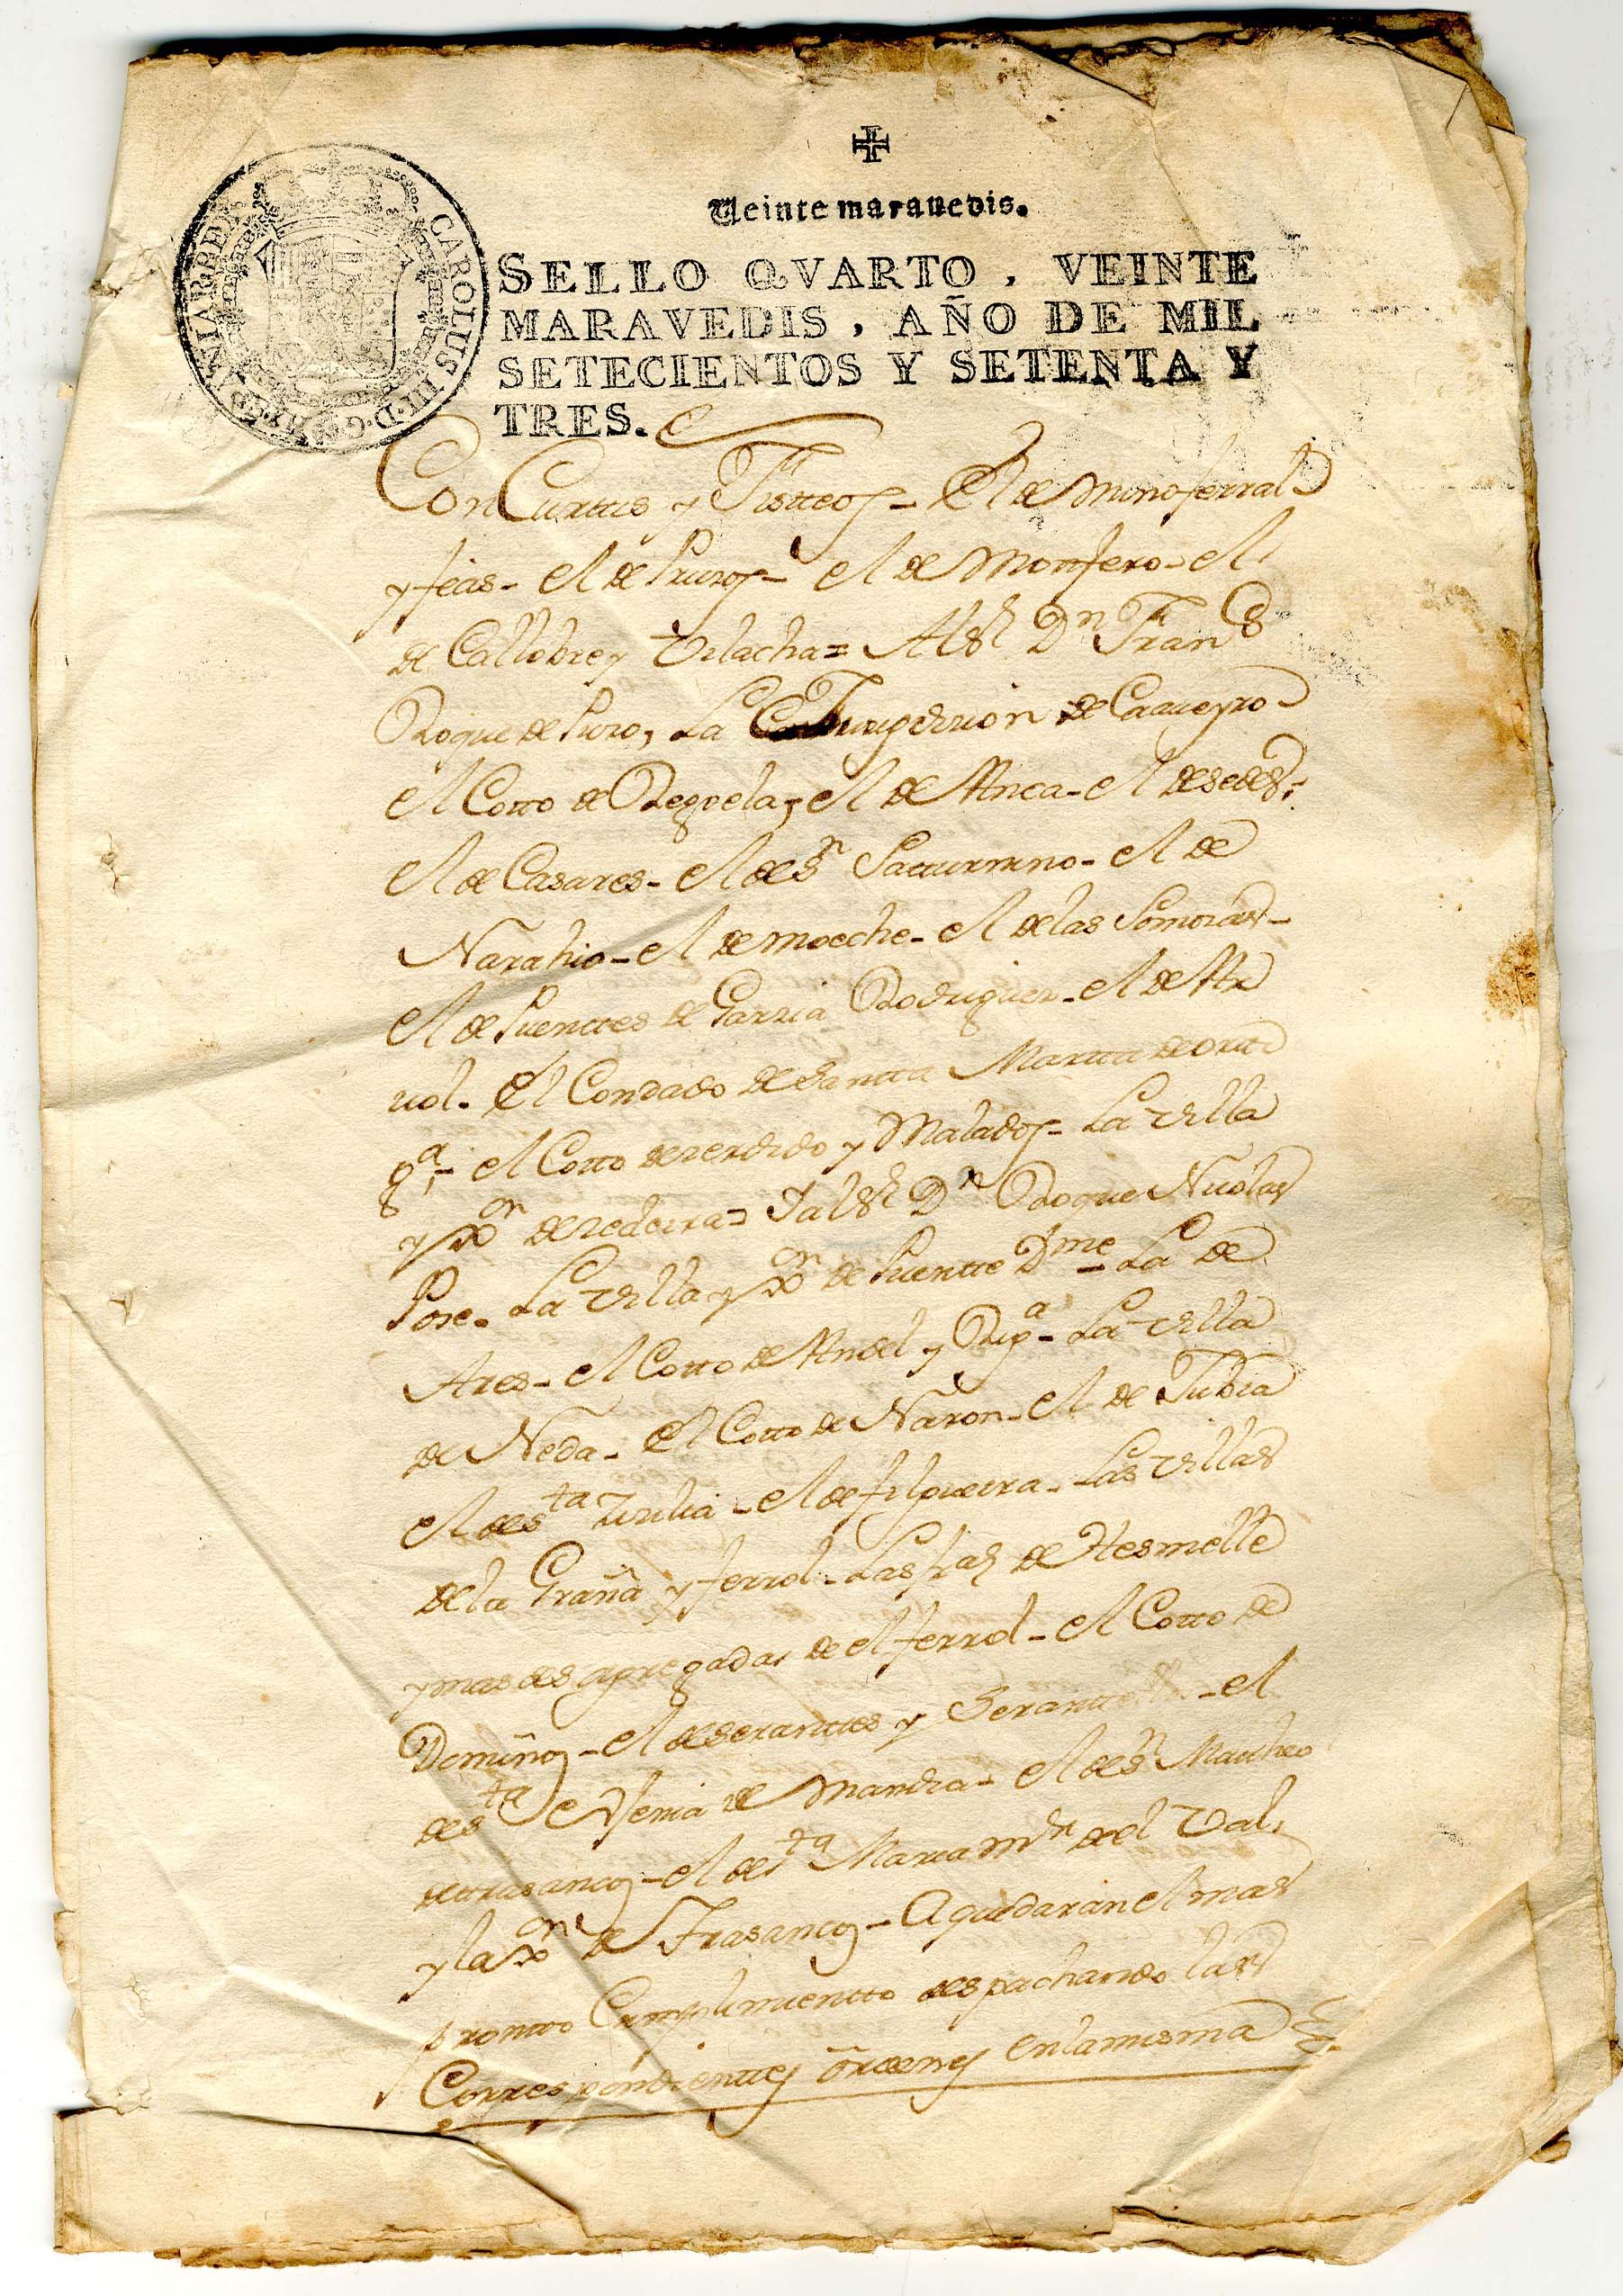 ✠
Veinte maravedis.
CAROLUS III. D. G. HISPANIAR REX
SELLO QVARTO, VEINTE
MARAVEDIS, AÑO DE MIL
SETECIENTOS Y SETENTA Y
TRES.
Con Curttis y Fistteos - El de Minoferral
y feás - el de Pruzos - el de Monfero - el
de Callobre y Vilacha = Al Sr. Dn Franco
Roque de Puzo, La Jurisdizion de Caaveyro
el Cotto de Regoela, el de Anca - el de sedes,
el de Casares - el de Sn Satturnino - el de
Narahio - el de moeche - el de las Somozas -
el de Puenttes de Garzia Rodriguez - el de
El Condado de Santta Martta de Orti
ga, - el Cotto de zerdido y Malados - La Villa
y xon de zedeira = Y al Sr Dn Roque Nicolas
Pose. La Villa y xon de Puentte Dme - La de
Ares - el Cotto de Andel y - La Villa
de Neda - El Cotto de Naron - el de Jubia
el de sta Zizilia - el de filgueira - Las Villas
de la Graña y ferrol - Las de Hesmelle
y mas desagregadas de el ferrol - el Cotto de
Domiños - el de seranttes y - el
de sta de Mandia - el de Sn Matheo
de trasancos - el de sta Maria del Val,
y la xon de Trasancos - A quedaran el mas
prontto Cumplimientto despachando las
Correspondienttes ôrdenes en la misma